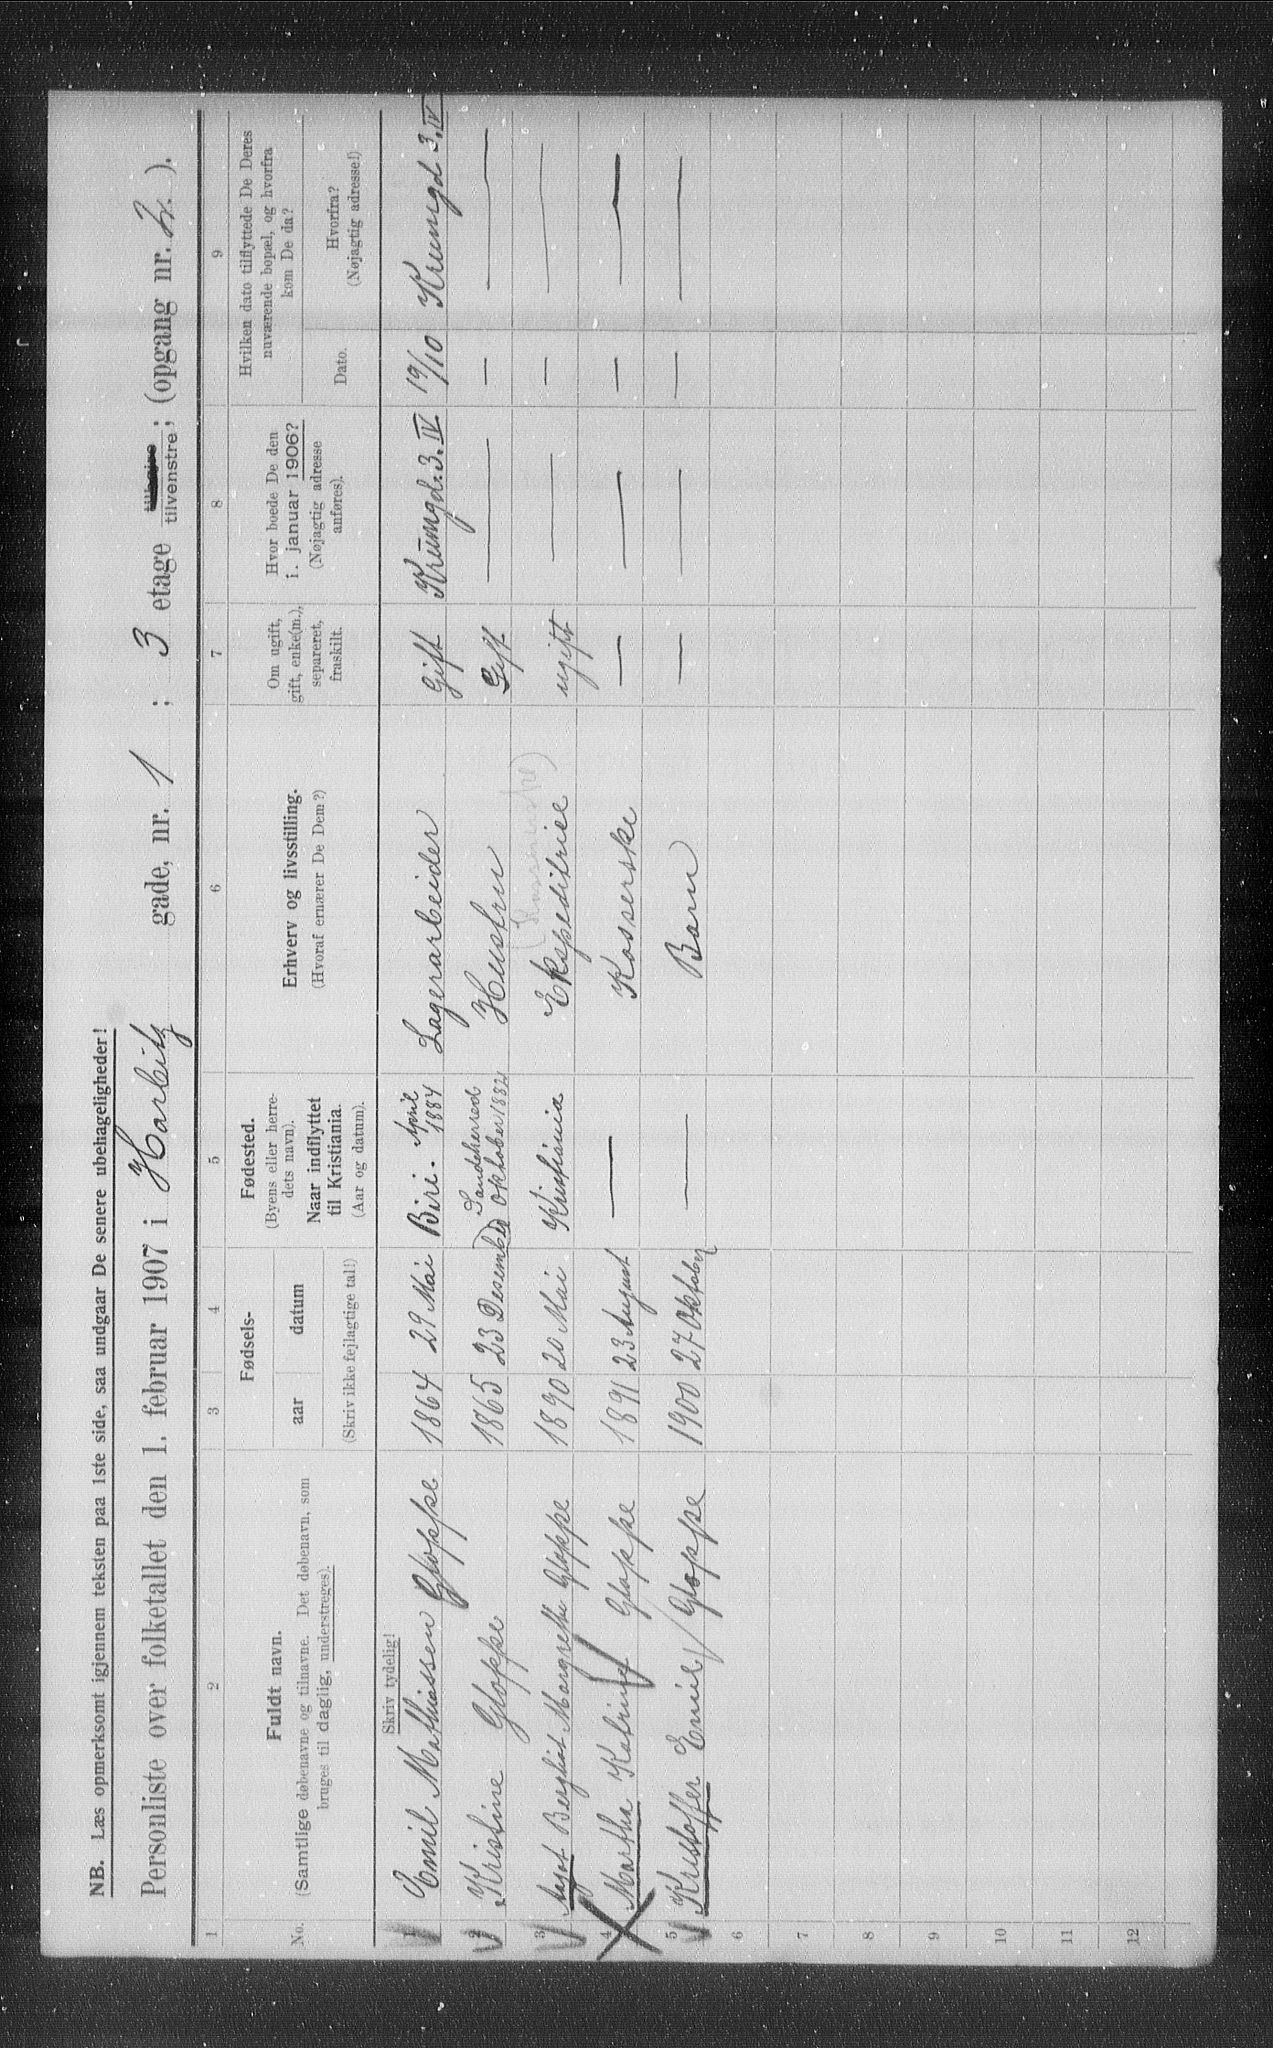 NB. Læs opmerksomt igjennem teksten paa 1ste side, saa undgaar De senere ubehageligheder!
Personliste over folketallet den 1. februar 1907 i Harbitz gade, nr. 1 ; 3 etage tilvenstre; (opgang nr. ).
1 2 3 4 5 6 7 8 9
No.
Fuldt navn.
(Samtlige døbenavne og tilnavne. Det døbenavn, som
bruges til daglig, understreges).
Fødsels-
aar datum
(Skriv ikke fejlagtige tal!)
Fødested.
(Byens eller herre-
dets navn).
Naar indflyttet
til Kristiania.
(Aar og datum).
Erhverv og livsstilling.
(Hvoraf ernærer De Dem?)
Om ugift,
gift, enke(m.),
separeret,
fraskilt.
Hvor boede De den
1. januar 1906?
(Nøjagtig adresse
anføres).
Hvilken dato tilflyttede De Deres
nuværende bopæl, og hvorfra
kom De da?
Dato.
Hvorfra?
(Nøjagtig adresse!)
Skriv tydelig!
1 Emil Mathiassen Gloppe 1864 29 Mai Biri. April 1884 Lagerarbeider Gift Krumgd. 3. IV 19/10 Krumgd 3. IV
2 Kristine Gloppe 1865 23 Desember Sandeherred Oktober 1882 Hustru Gift — — —
3 Aagot Bergliot Margrethe Gloppe 1890 20 Mai Kristiania Ekspeditrice ugift — — —
4 Martha Katrine Gloppe 1891 23 August — Kasserske — — — —
5 Kristoffer Emil Gloppe 1900 27 Oktober — Barn — — — —
6
7
8
9
10
11
12